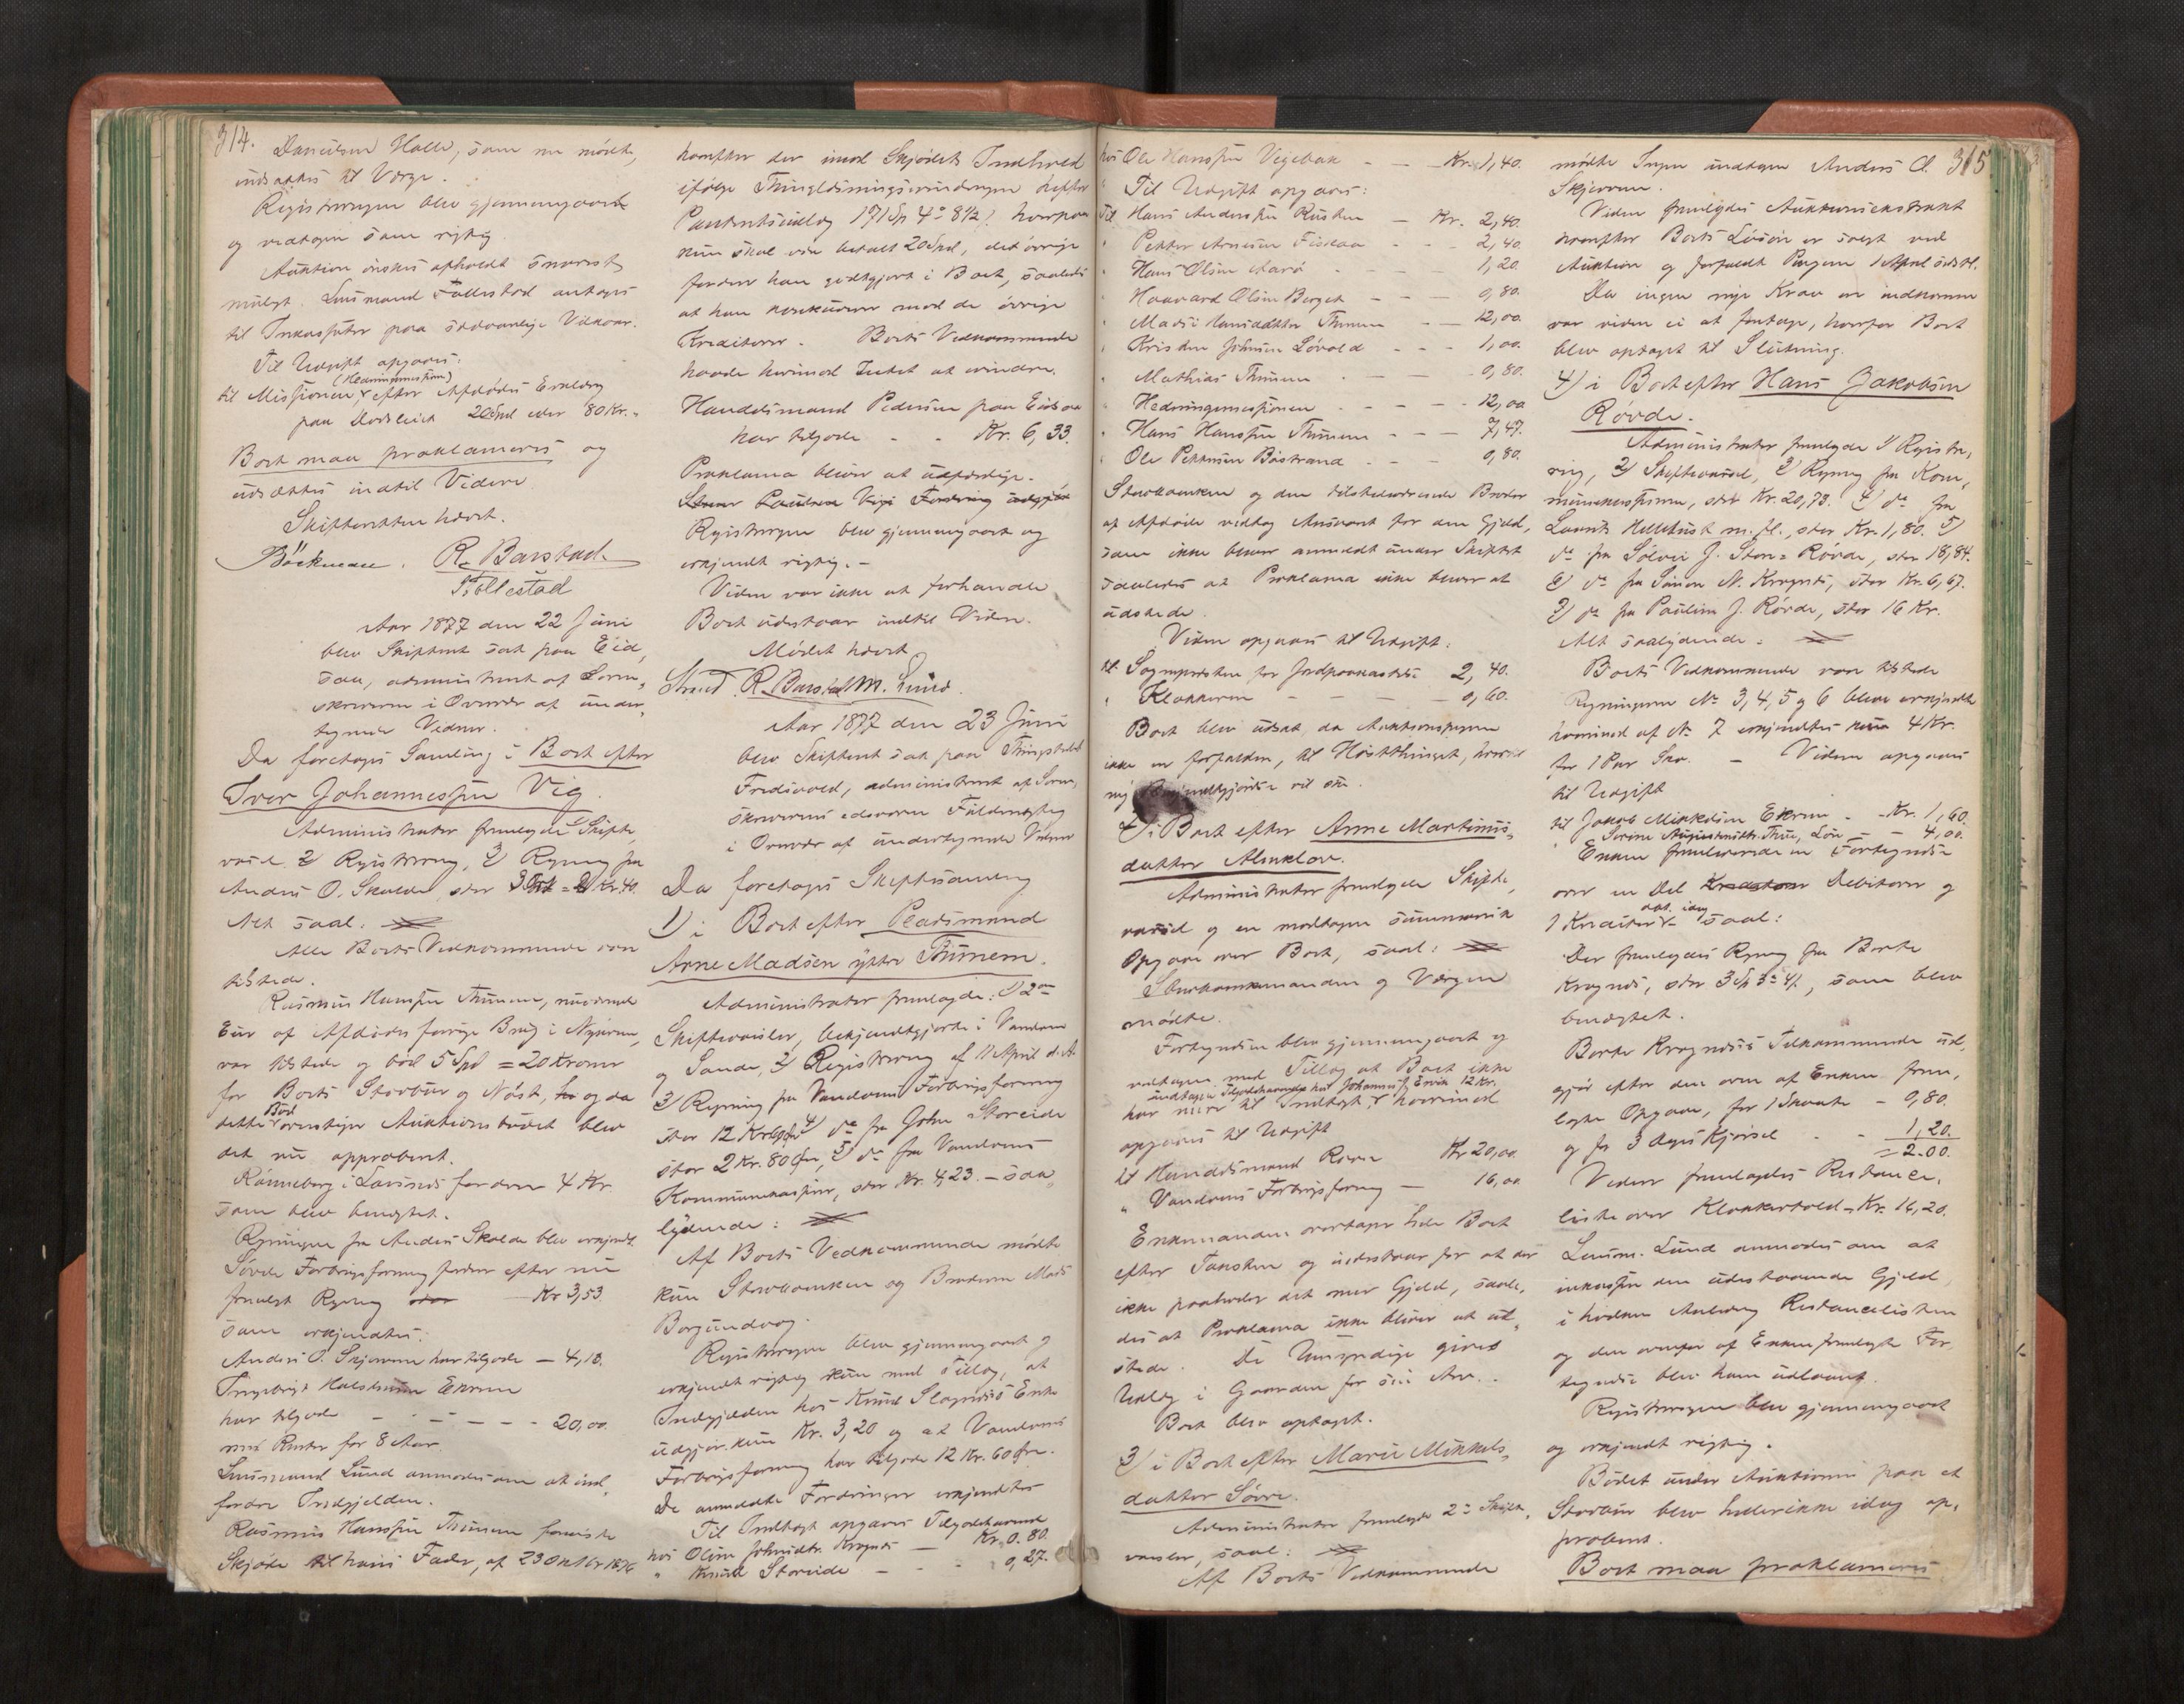 314.
Danielsen Halle, som nu mödte,
indsattes til Værge.
Registreringen blev gjennemgaaet
og vedtagen som rigtig
Auktion önskes afholdt snarest
muligt. Lensmand Follestad antages
til Inkassator paa sædvanlige Vilkaar.
Til Udgift opgaves:
(Hedningemissionen)
til Missionen efter Afdödes Erklæring
paa Dödsleiet 20 Spd eller 80 Kr.
Boet maa proklameres og
udsættes indtil Videre
Skifteretten hævet.
Böckman. R. Barstad.
Follestad
Aar 1877 den 22 Juni
blev Skifteret sat paa Eid,
saa, administreret af Soren,
skriveren i Overvær af under,
tegnede Vidner.
Da foretoges Samling i Boet efter
Iver Johannessen Vig.
Administrator fremlagde 1) Skifte,
varsel 2) Registrering, 3) Regning fra
Anders O. Skolde, stor
Alt saal.
Alle Boets Vedkommende var
tilstede.
Rasmus Hanssen Thunem, nuværende
Eier af Afdödes forrige Brug i
var tilstede og böd 5 Spd = 20 Kroner
for Boets Stovbur og Nöst, og da
Bud
dette overstiger Auktionsbudet blev
det nu approberet.
Rönneberg i Larsnes fordrer 4 Kr.
som blev benegtet.
Regningen fra Anders Skolde blev erkjendt.
Sövde Forbrugsforening fordrer efter nu
fremlagt Regning Kr 3,53
som erkjendtes.
Anders O. Skjerven har tilgode — 4,10.
Ingebrigt Ekrem
har tilgode — — — — 20,00.
med Renter for 8 Aar.
Lensmand Lund anmodes om at ind,
fordre Indgjelden.
Rasmus Hanssen Thunem foreviste
Skjöde til hans Fader, af 23 Oktbr 1876
hvorefter der imod Skjödets Indhold
ifölge Thinglæsningserindringen hefter
Panteretsudlæg 171 Sp 4 o 8 1/2 /. hvorpaa
kun skal være betalt 20 Spd, det övrige
fordrer han godtgjort i Boet, saaledes
at han konkurrerer med de övrige
Kreditorer. Boets Vedkommende
havde herimod Intet at erindre.
Handelsmand Pedersen paa Eidsaa
har tilgode - - Kr. 6,33.
Proklama bliver at udfærdige.
Registreringen blev gjennemgaaet og
erkjendt rigtig. —
Videre var ikke at forhandle
Boet udestaar indtil Videre.
Mödet hævet
Strand. R. Barstad. M. Lund.
Aar 1877 den 23 Juni
blev Skifteret sat paa Thingstedet
Fredsvold, administreret af Soren,
skriverens edsvorne Fuldmægtig
i Overvær af undertegnede Vidner
Da foretoges Skiftesamling
1) i Boet efter Pladsmand
Arne Madsen ytre Thunem.
Administrator fremlagde: 1) 2 de
Skiftevarsler, bekjendtgjorte i Vanelven
og Sande, 2) Registrering af 11 April d.A.
3) Regning fra Vanelvens Forbrugsforening
stor 12 Kr 60 öre 4) do fra John Storeide
stor 2 Kr. 80 öre, 5) do fra Vanelvens
Kommunekasserer, stor Kr. 4,23. — saa,
lydende:
Af Boets Vedkommende mödte
kun Stervboenken og Broderen Mads
Borgundvog.
Registreringen blev gjennemgaaet og
erkjendt rigtig kun med Tillæg, at
Indgjelden hos Knud Slagnæs's Enke
udgjör kun Kr. 3,20 og at Vanelvens
Forbrugsforening har tilgode 12 Kr. 60 öre.
De anmeldte Fordringer erkjendtes
Til Indtægt opgaves Tilgodehavende
hos Oline Johnsdtr. Krognæs — Kr. 0.80.
" Knud Storeide — - - 0,27.
hos Ole Hanssen Vigebak - — Kr. 1,40.
Til Udgift opgaves:
Til Hans Andersen Rusten — Kr. 2,40.
" Petter Arnesen Fiskaa - - - 2,40.
" Hans Olsen Aarö - - — 1,20.
" Haavard Olsen Berget - - — 0,80.
" Madsi Hansdatter Thunem - — 12,00.
" Kristen Johnsen Lövold - - - 1,00.
" Mathias Thunem - - — 0,80.
" Hedningemissionen - - - - 12,00
" Hans Hanssen Thunem - - — 7,47.
" Ole Pettersen Båstrand - - — 0,80.
Stervboenken og den tilstedeværende Broder
af Afdöde vedtog Ansvaret for den Gjeld,
som ikke bliver anmeldt under Skiftet
saaledes at Proklama ikke bliver at
udstede.
Videre opgaves til Udgift:
til Sognepresten for Jordpaakastelse 2,40.
" Klokkeren - - - - 0,60.
Boet blev udsat, da Auktionspengene
ikke er forfaldne, til Höstthinget, hvortil
ny Bekjendtgjörelse vil ske.
2) i Boet efter Anne Martinus,
datter Almklov.
Administrator fremlagde Skifte,
varsel og en modtagen summarisk
Opgave over Boet, saal:
Enkemanden og Værgen
mödte.
Fortegnelsen blev gjennemgaaet og
vedtagen med Tillæg at Boet ikke
undtagen Tilgodehavende hos Johannes J. Ervik 12 Kr.
har mere til Indtægt, hvorimod
opgaves til Udgift
til Handelsmand Kr 20,00.
" Vanelvens Forbrugsforening — 16,00.
Enkemanden overtager hele Boet
efter Taksten og indestaar for at der
ikke paahviler det mere Gjeld, saale,
des at Proklama ikke bliver at ud,
stede. De Umyndige gives
Udlæg i Gaarden for sin Arv.
Boet blev optaget.
3) i Boet efter Marie Mikkels,
datter Sövre.
Administrator fremlagde 2 de Skifte,
varsler, saal:
Af Boets Vedkommende
315
mödte Ingen undtagen Anders O.
Skjerven.
Videre fremlagdes Auktionsekstrakt
hvorefter Boets Lösöre er solgt ved
Auktion og forfaldt Pengene 1 April sidstl.
Da ingen nye Krav er indkomne
var videre ei at foretage, hvorfor Boet
blev optaget til Slutning.
4) i Boet efter Hans Jakobsen
Rövde.
Administrator fremlagde 1) Registre,
ring, 2) Skiftevarsel, 3) Regning fra Kom,
munekassereren, stor Kr. 20,73. 4) do fra
Laurits Hellebust m. fl., stor Kr. 1,80. 5)
do fra Sölvei J. Stor-Rövde, stor 18,84.
6) do fra Simon N. Krognæs, stor Kr. 6,67.
7) do fra Pauline J. Rövde, stor 16 Kr.
Alt saalydende:
Boets Vedkommende var tilstede
Regningerne No 3, 4, 5 og 6 bleve erkjendte
hvorimod af No 7 erkjendtes kun 4 Kr.
for 1 Par Sko. — Videre opgaves
til Udgift
til Jakob Ekrem - Kr. 1,60.
" Serine Thun, Lön — - 4,00.
Enken fremleverede en Fortegnelse
over en Del Debitorer og
dat. idag
1 Kreditor saal:
Der fremlagdes Regning fra Berte
Krognæs, stor 3 Sp 3 o 4/., som blev
benegtet.
Berte Krognæs's Tilkommende ud,
gjör efter den over af Enken frem,
lagte Opgave, for 1 - 0,80.
og for 3 Dages Kjörsel - - 1,20.
= 2.00.
Videre fremlagdes Restance,
liste over Klokkertold = Kr. 16,20.
Lensm. Lund anmodes om at
inkassere den udestaaende Gjeld
i hvilken Anledning Restancelisten
og den ovenfor af Enken fremlagte For,
tegnelse blev ham udlaant.
Registreringen blev gjennemgaaet
og erkjendt rigtig.
Budet under Auktionen paa et
Stovbur blev heller ikke idag ap,
proberet.
Boet maa proklameres